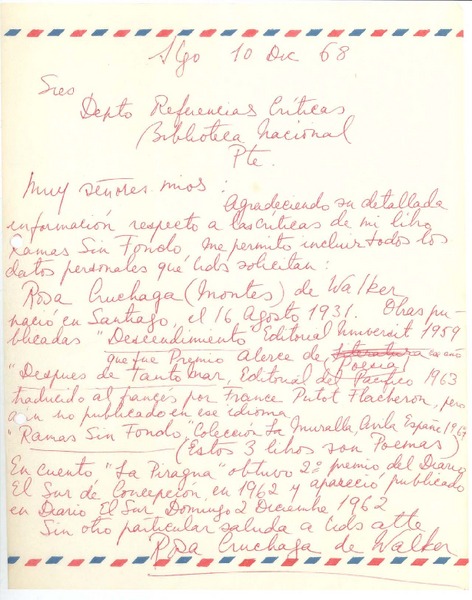 Stgo 10 Dic 68
Sres
Depto Referencias Críticas
Biblioteca Nacional
Pte.
Muy señores mios:
Agradeciendo su detallada
información respecto a las críticas de mi libro
Ramas Sin Fondo, me permito incluir todos los
datos personales que Uds solicitan:
Rosa Cruchaga (Montes) de Walker
nació en Santiago, el 16 Agosto 1931. Obras pu-
blicadas "Descendimiento" Editorial Universit 1959
que fue Premio Alerce de Literatura ese año
Poesía
"Despues de Tanto Mar, Editorial del Pacífico 1963
traducido al frances por France Putot Flacheron, pero
aún no publicado en ese idioma.
"Ramas Sin Fondo" Colección La Muralla, Avila España 1967
(Estos 3 libros son Poemas)
En cuento "La Piragua" obtuvo 2º premio del Diario
El Sur de Concepción, en 1962 y apareció publicado
en Diario El Sur, Domingo 2 Diciembre 1962
Sin otro particular saluda a Uds atte
Rosa Cruchaga de Walker